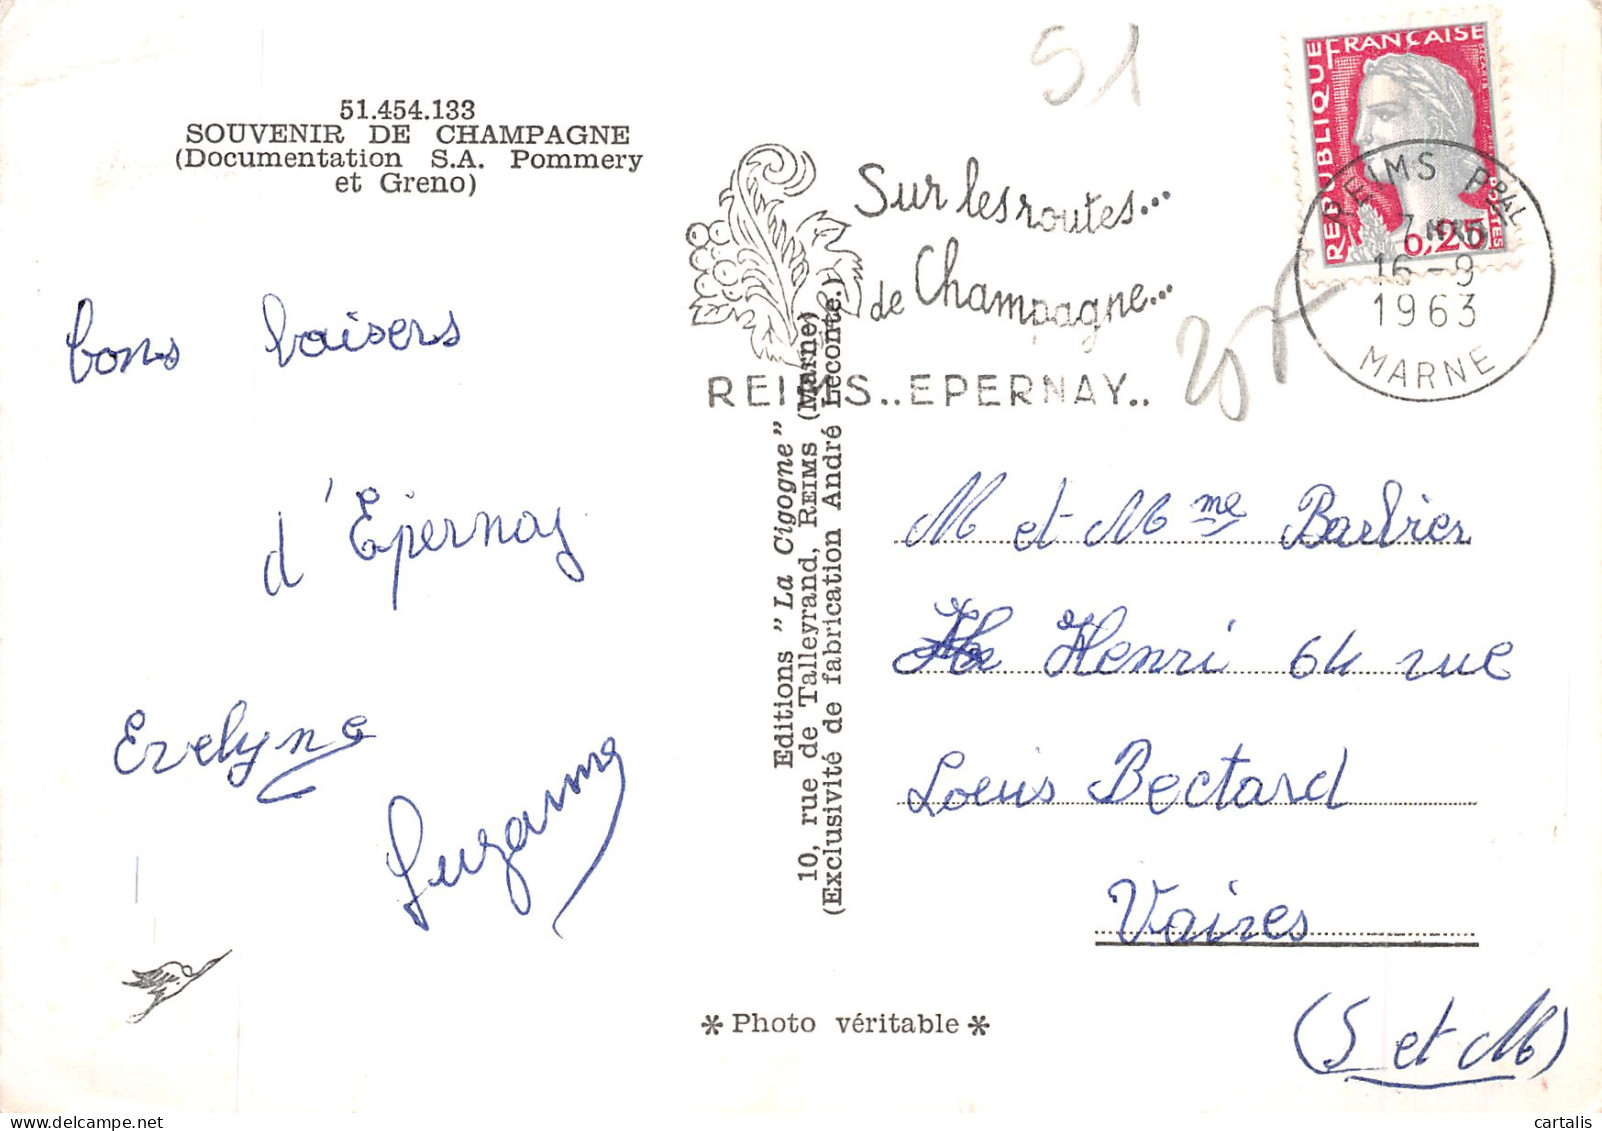 51.454.133
SOUVENIR DE CHAMPAGNE
(Documentation S.A. Pommery
et Greno)
bons baisers
d'Epernay
Evelyne
Suzanne
51
Sur les routes...
de Champagne...
REIMS..EPERNAY..
REPUBLIQUE FRANÇAISE
0,25
POSTES
REIMS PPAL
16-9
1963
MARNE
Editions "La Cigogne"
10, rue de Talleyrand, REIMS (Marne)
(Exclusivité de fabrication André Leconte.)
M et Mme Barbier
Henri 64 rue
Louis Bectard
Vaires
(S et M)
* Photo véritable *
cartalis